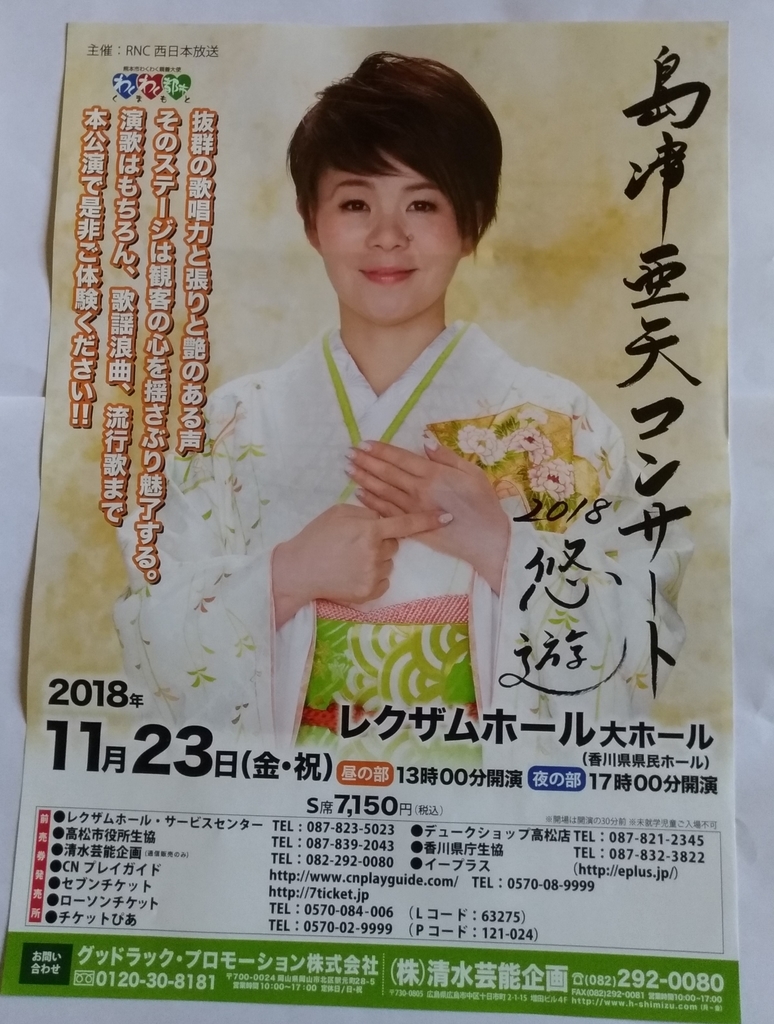 主催：RNC 西日本放送
熊本市わくわく親善大使
わくわく都市
くまもと
島津亜矢コンサート
2018
悠遊
抜群の歌唱力と張りと艶のある声
そのステージは観客の心を揺さぶり魅了する。
演歌はもちろん、歌謡浪曲、流行歌まで
本公演で是非ご体験ください!!
2018年
11月23日(金・祝)
レクザムホール 大ホール
(香川県県民ホール)
昼の部 13時00分開演 夜の部 17時00分開演
S席 7,150円(税込)
※開場は開演の30分前 ※未就学児童ご入場不可
前売券発売所
●レクザムホール・サービスセンター TEL：087-823-5023
●高松市役所生協 TEL：087-839-2043
●清水芸能企画 (通信販売のみ) TEL：082-292-0080
●CN プレイガイド http://www.cnplayguide.com/ TEL：0570-08-9999
●セブンチケット http://7ticket.jp
●ローソンチケット TEL：0570-084-006 （L コード：63275）
●チケットぴあ TEL：0570-02-9999 （P コード：121-024）
●デュークショップ高松店 TEL：087-821-2345
●香川県庁生協 TEL：087-832-3822
●イープラス (http://eplus.jp/)
お問い合わせ
グッドラック・プロモーション株式会社
0120-30-8181
〒700-0024 岡山県岡山市北区駅元町28-5
営業時間 10:00〜17:00 定休日/日・祝
(株)清水芸能企画 ☎(082)292-0080
FAX(082)292-0081 営業時間10:00〜17:00
〒730-0805 広島県広島市中区十日市町2-1-15 増田ビル4F http://www.h-shimizu.com